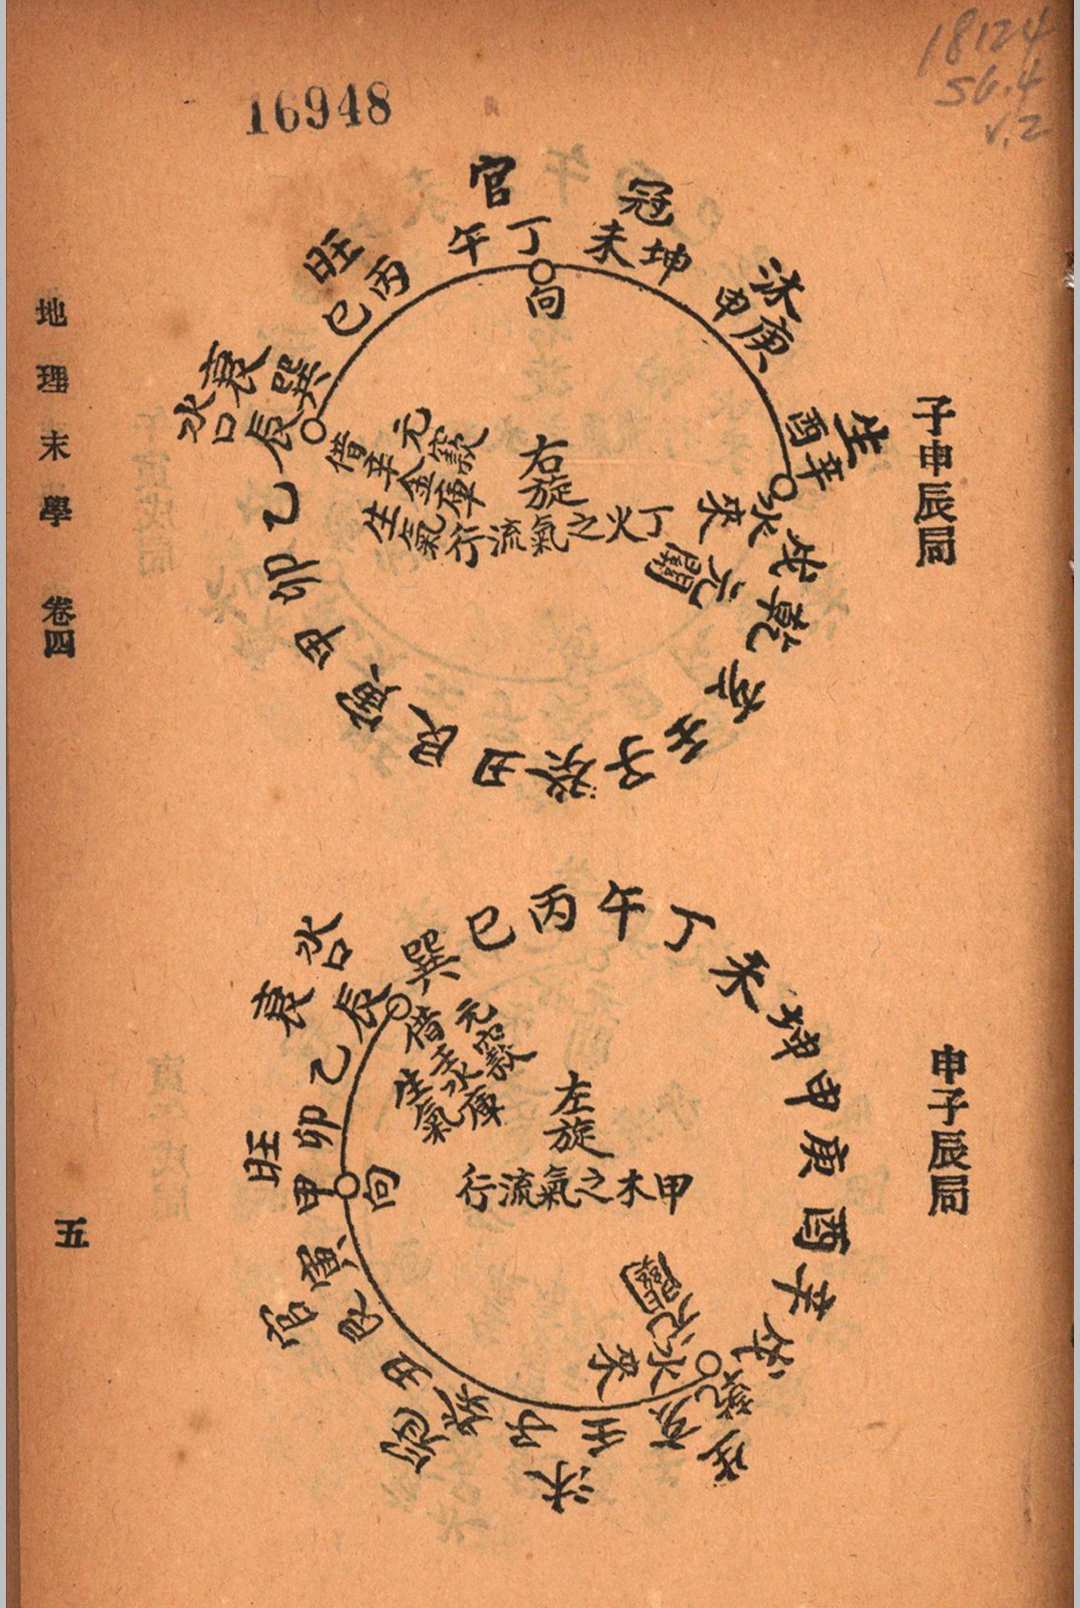 18124
56.4
v.2
16948
子申辰局
官
冠
沐
生
旺
衰
水口
午丁
未坤
申庚
酉辛
戌乾
亥
壬
子
癸
丑
艮
寅
甲
卯
乙
辰
巽
巳丙
向
右旋
丁火之氣流行
水來
元關
元窾
借辛金庫
生氣
申子辰局
水口
衰
旺
官
冠
沐
生
巽
巳
丙
午
丁
未
坤
申
庚
酉
辛
戌
乾
亥
壬
子
癸
丑
艮
寅
甲
卯
乙
辰
向
左旋
甲木之氣流行
水來
元關
元窾
借壬水庫
生氣
地理末學 卷四
五